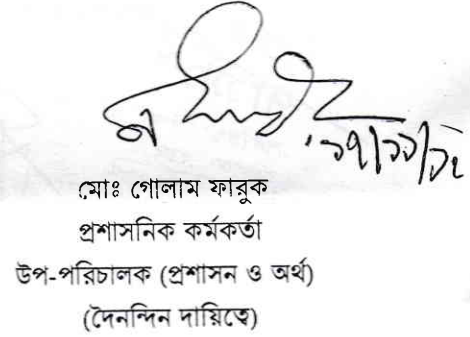 ১৭/১১/১২
মোঃ গোলাম ফারুক
প্রশাসনিক কর্মকর্তা
উপ-পরিচালক (প্রশাসন ও অর্থ)
(দৈনন্দিন দায়িত্বে)